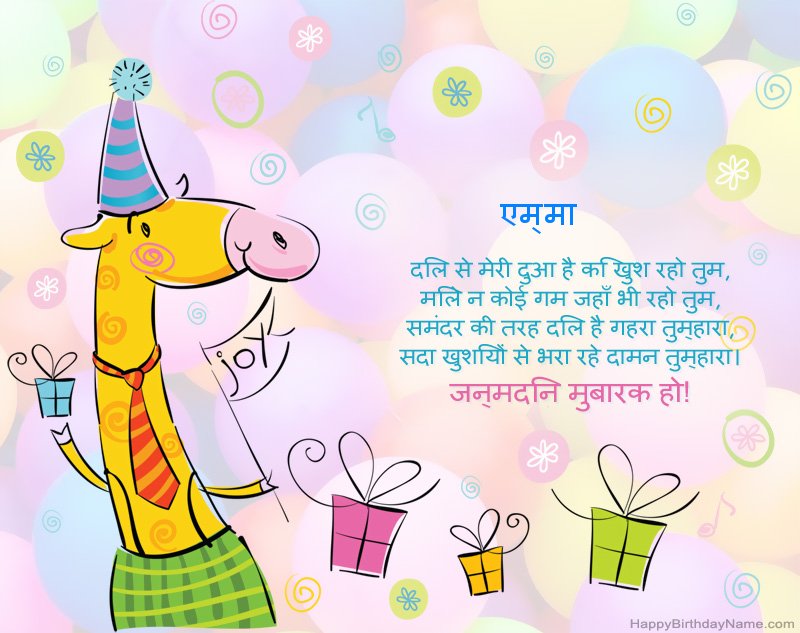 एम्मा
दिल से मेरी दुआ है कि खुश रहो तुम,
मिले न कोई गम जहाँ भी रहो तुम,
समंदर की तरह दिल है गहरा तुम्हारा,
सदा खुशियों से भरा रहे दामन तुम्हारा।
जन्मदिन मुबारक हो!
joy
HappyBirthdayName.com